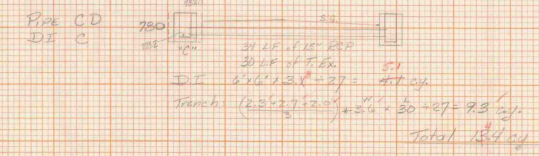 PIPE CD
DI C
780
"C"
S.G.
34 LF of 15" RCP
30 LF of T. Ex.
5.1
DI 6'x6'x3. ÷27= 4.1 cy.
Trench: (2.3'+2.7'+2.9')/3 x 3. x 30 ÷27= 9.3 cy.
Total 13.4 cy